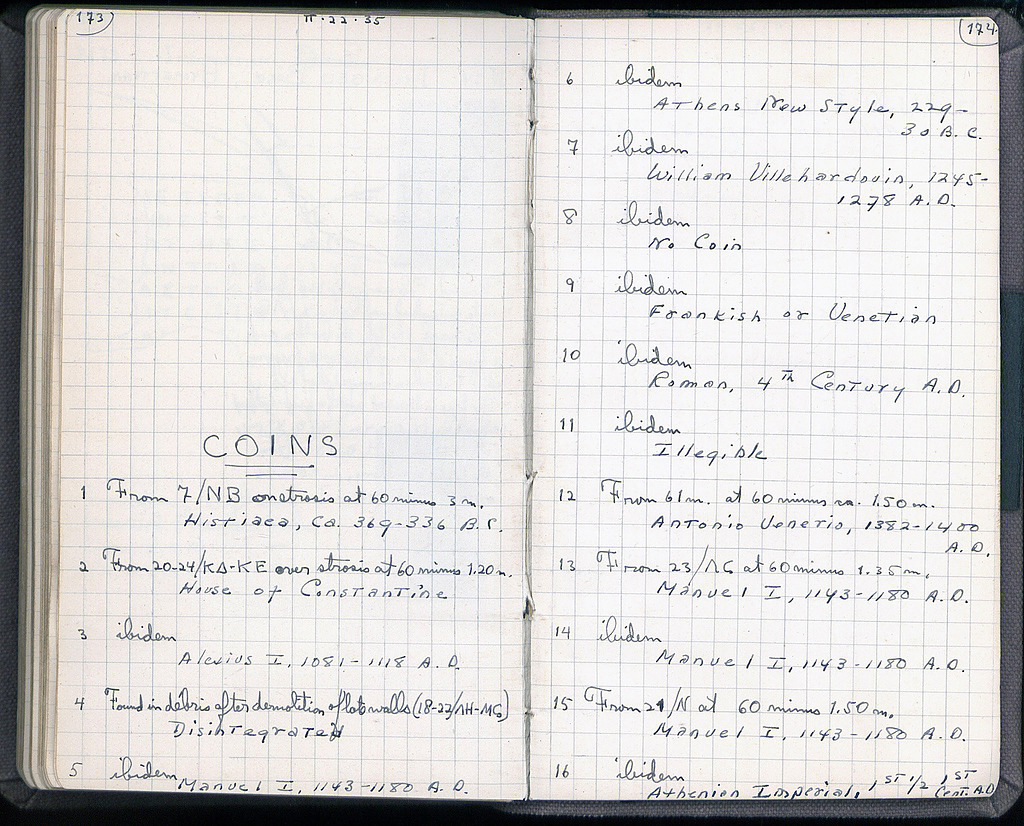 173
π·22·35
COINS
1 From 7/NB on strosis at 60 minus 3 m.
Histiaea, Ca. 369-336 B.C.
2 From 20-24/ΚΔ-ΚΕ over strosis at 60 minus 1.20 m.
House of Constantine
3 ibidem
Alexius I, 1081-1118 A.D.
4 Found in débris after demolition of late walls (18-22/ΛΗ-
Disintegrated
5 ibidem
Manuel I, 1143-1180 A.D.
174
6 ibidem
Athens New Style, 229-
30 B.C.
7 ibidem
William Villehardouin, 1245-
1278 A.D.
8 ibidem
No Coin
9 ibidem
Frankish or Venetian
10 ibidem
Roman, 4th Century A.D.
11 ibidem
Illegible
12 From 61 m. at 60 minus ca. 1.50 m.
Antonio Venerio, 1382-1400
A.D.
13 From 23/ΛϚ at 60 minus 1.35 m.
Manuel I, 1143-1180 A.D.
14 ibidem
Manuel I, 1143-1180 A.D.
15 From 21/N at 60 minus 1.50 m.
Manuel I, 1143-1180 A.D.
16 ibidem
Athenian Imperial, 1st 1/2 1st
Cent. A.D.